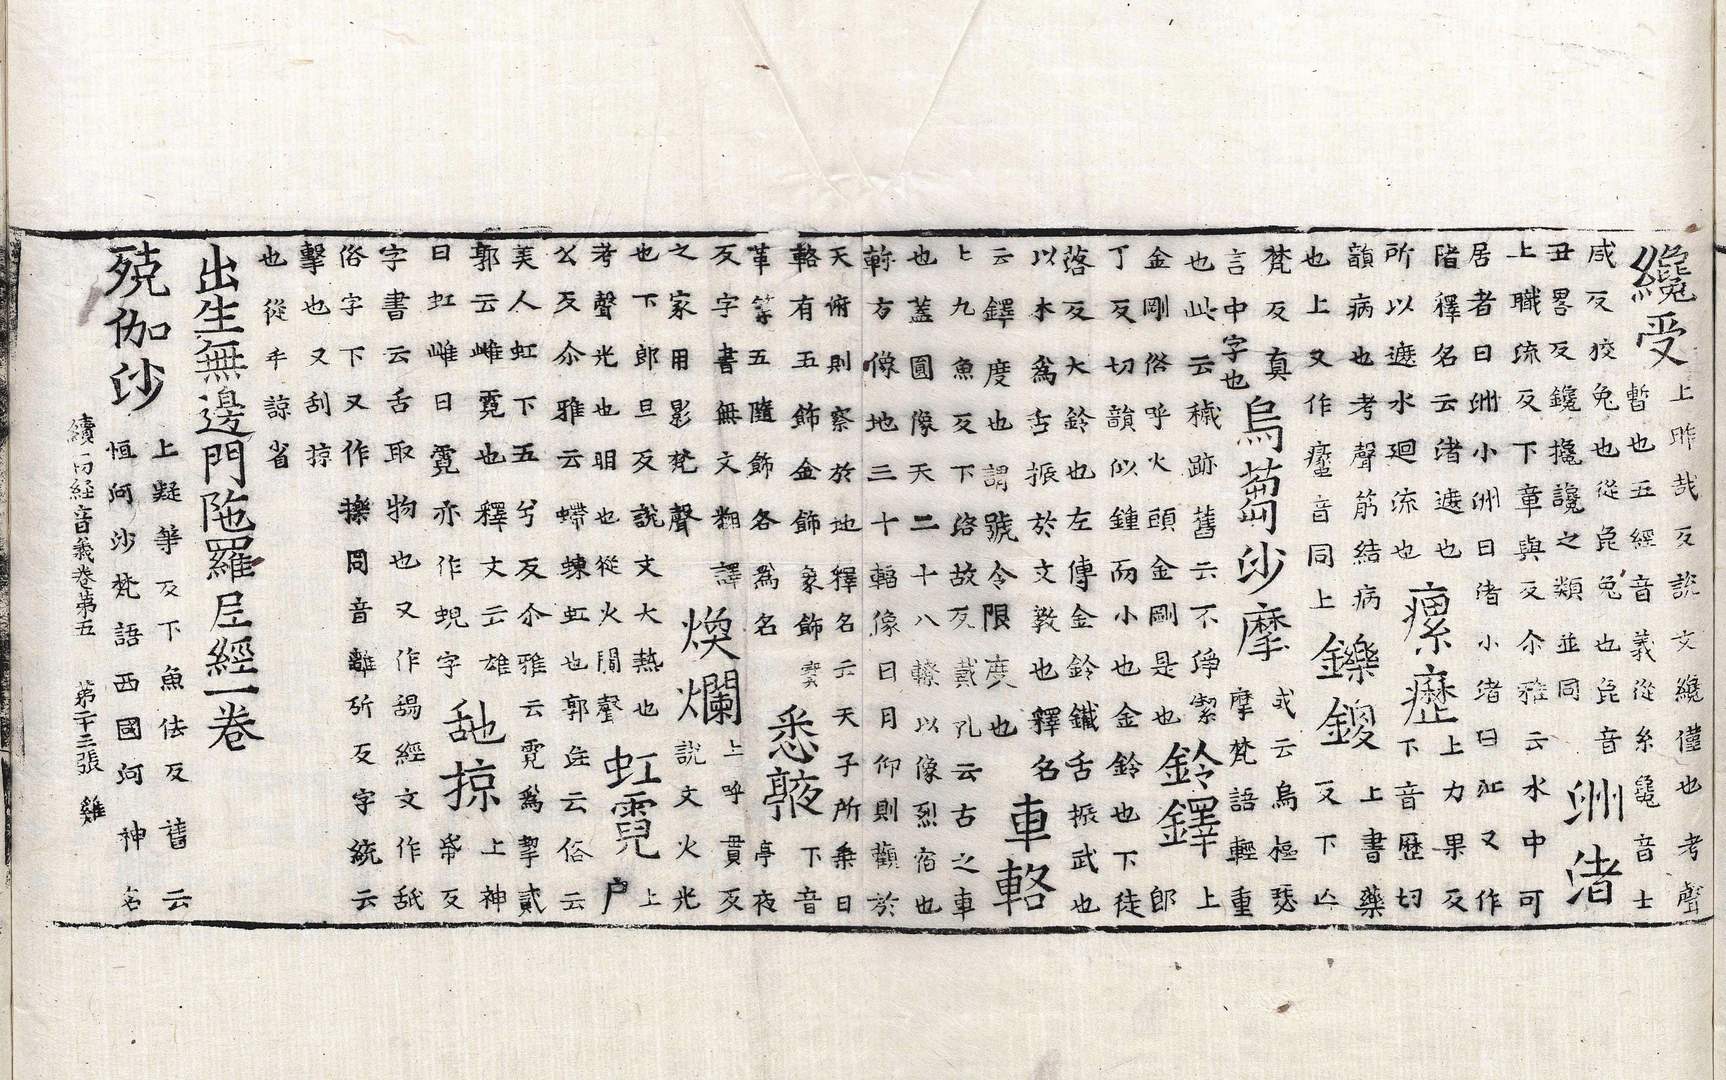 纔受上昨哉反說文纔僅也考聲
暫也五經音義從糸毚音士
咸反狡兔也從㲋兔也㲋音
丑畧反鑱攙讒之類並同洲渚
上職流反下章與反尒雅云水中可
居者曰洲小洲曰渚小渚曰沚又作
陼釋名云渚遮也
所以遮水迴流也瘰癧上力果反
下音歷切
韻病也考聲筋結病
也上又作音同上鑠鑁上書藥
反下亡
梵反真
言中字也烏蒭沙摩或云烏樞瑟
摩梵語輕重
也此云穢跡舊云不淨潔
金剛俗呼火頭金剛是也鈴鐸上
郎
丁反切韻似鍾而小也金鈴也下徒
落反大鈴也左傳金鈴鐵舌振武也
以木為舌振於文教也釋名
云鐸度也謂號令限度也車輅
上九魚反下洛故反戴孔云古之車
也蓋圓像天二十八轑以像烈宿也
軫方像地三十輻像日月仰則觀於
天俯則察於地釋名云天子所乘曰
輅有五飾金飾象飾
革等五隨飾各為名悉下音
亭夜
反字書無文翻譯
之家用影梵聲煥爛上呼貫反
說文火光
也下郎旦反說文大熱也
考聲光也明也從火閒聲虹霓上
戶
公反尒雅云螮蝀虹也郭注云俗云
美人虹下五兮反尒雅云霓為挈貳
郭云雌霓也釋文云雄
曰虹雌曰霓亦作蜺字舐掠上神
帋反
字書云舌取物也又作䑛經文作舐
俗字下又作同音離所反字統云
擊也又刮掠
也從手諒省
出生無邊門陁羅尼經一卷
殑伽沙上凝等反下魚佉反舊云
恒河沙梵語西國河神名
續一切経音義卷第五 第二十三張 雞